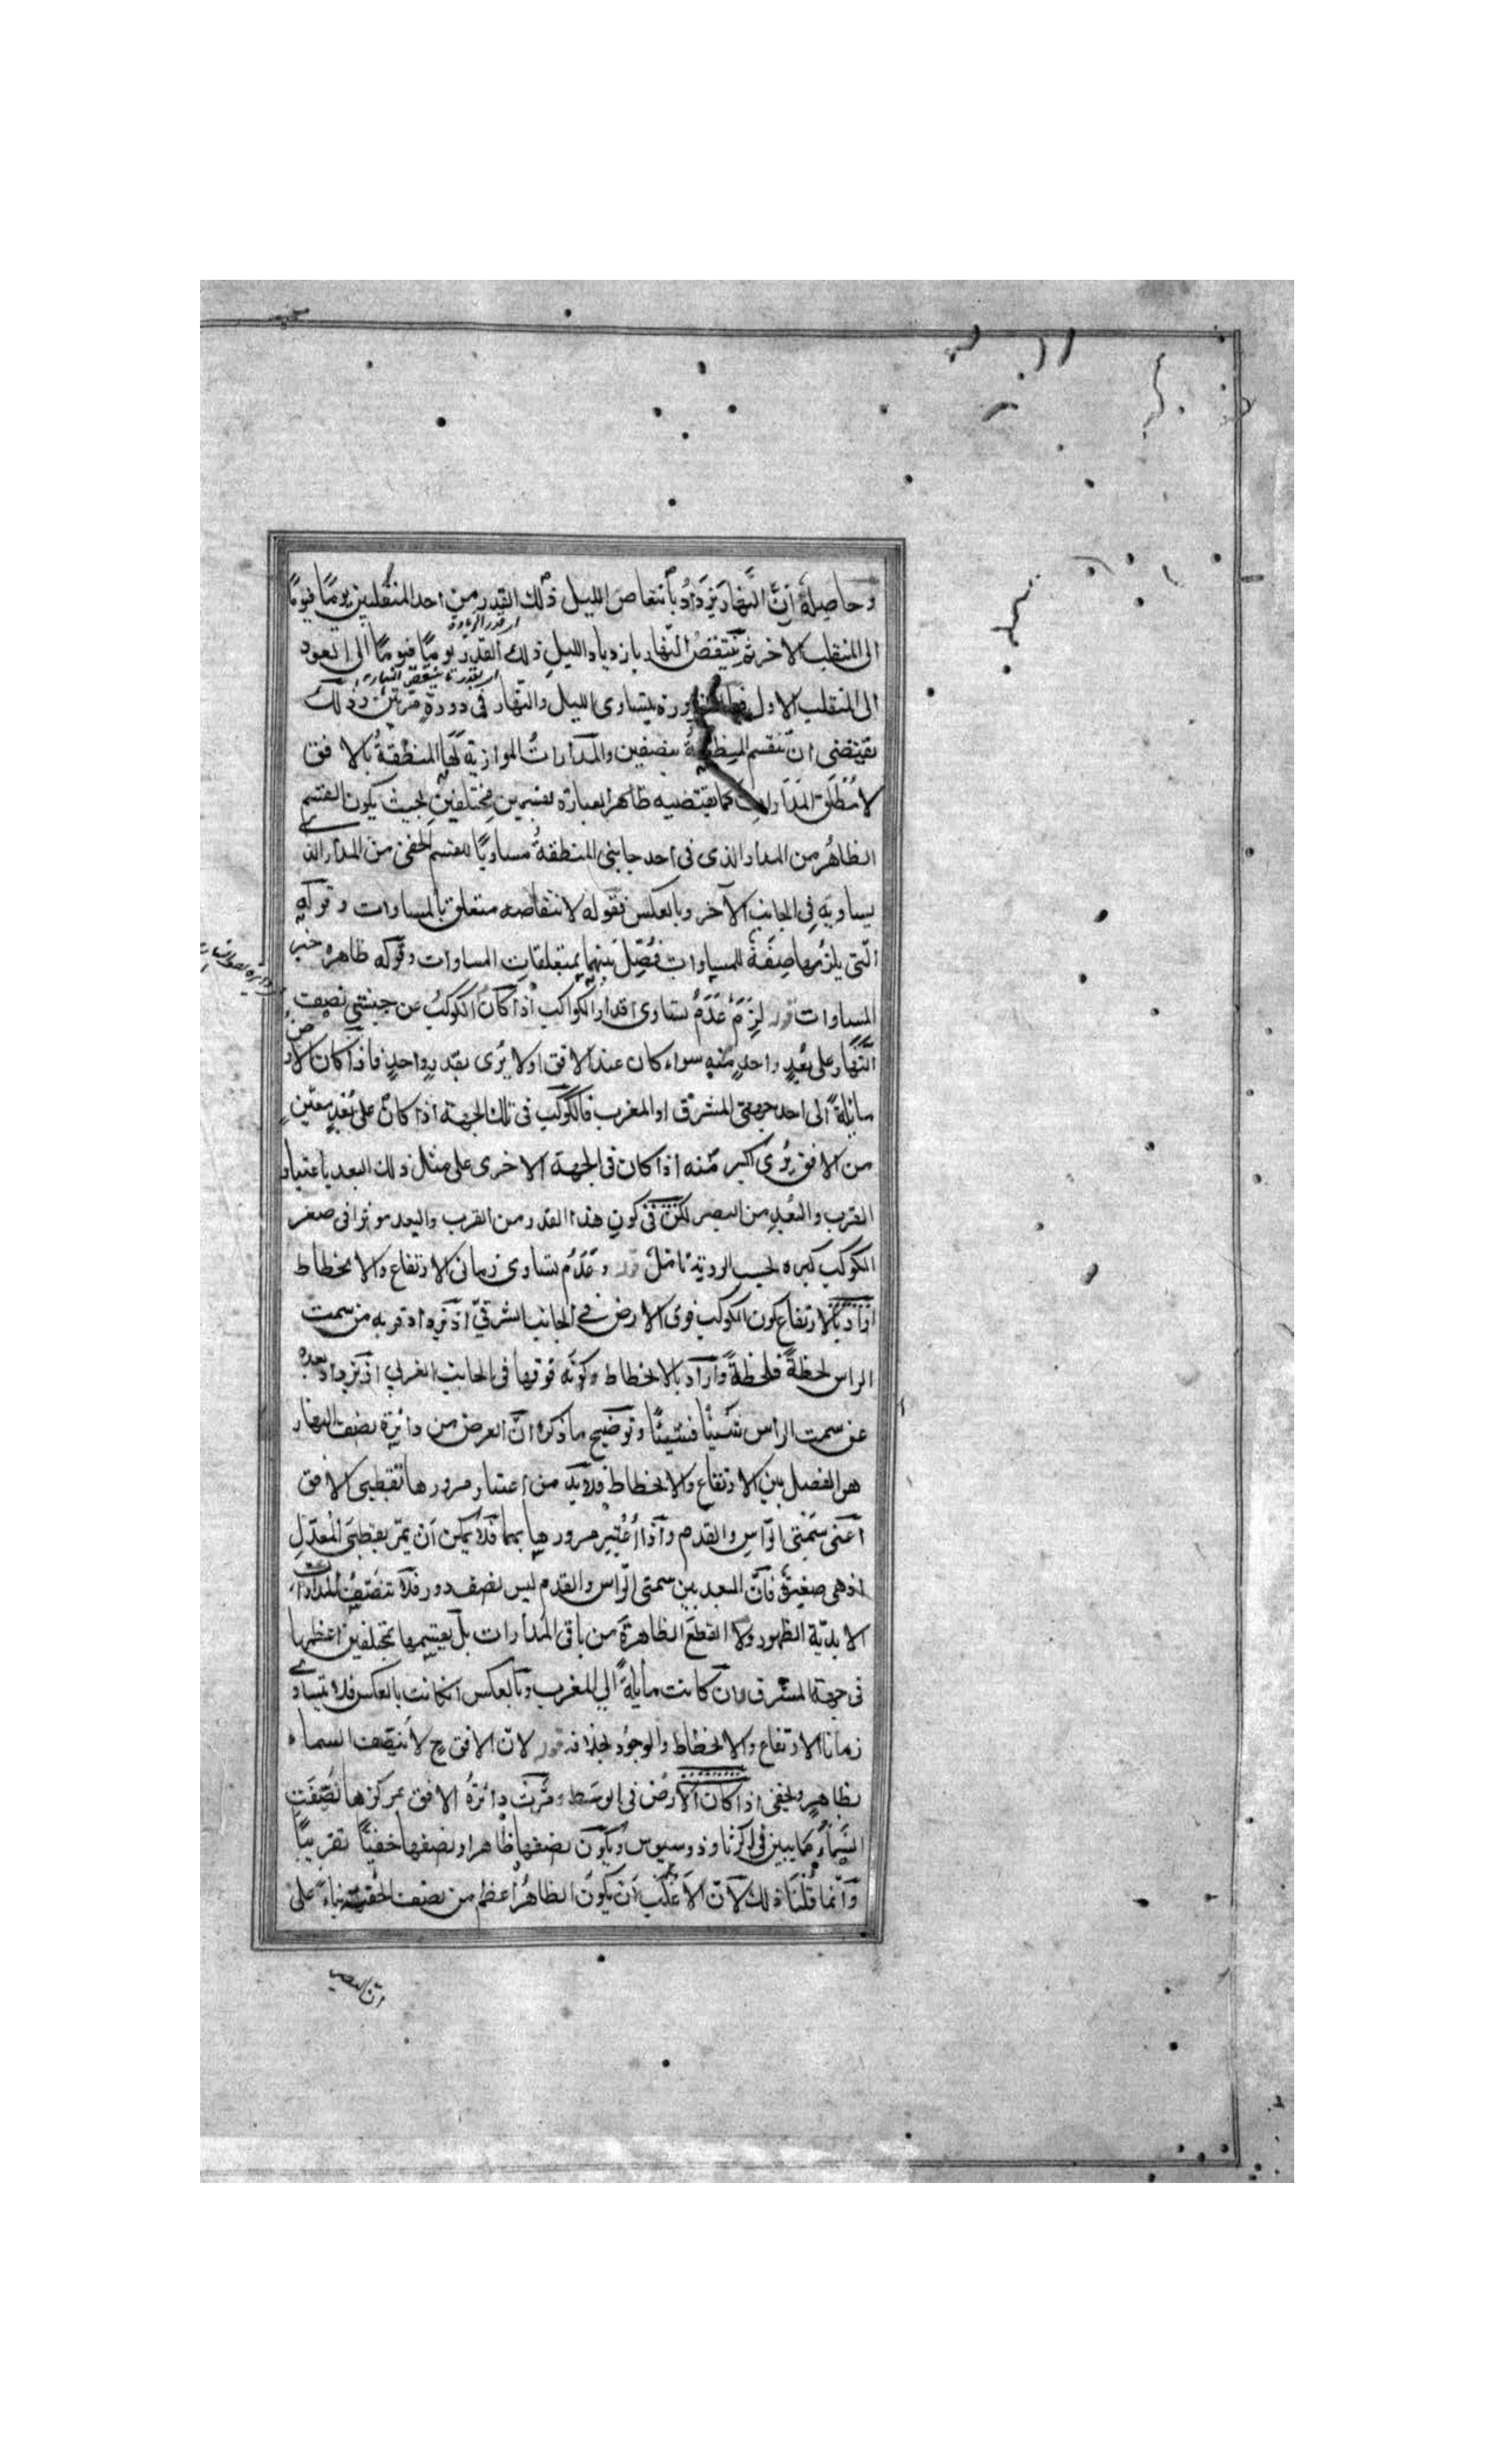 وحاصله أنّ النّهار يَزدادُ بأنتقاص الليل ذلك القدر من احد المنقلبين يومًا فيومًا
اى قدر الزيادة
الى المنقلب الاخر ثم ينتقصُ النّهار بازدياد الليلِ ذلك القدر يومًا فيومًا الى العود
اى بقدر ما ينتقص النهار
الى المنقلب الاول يتساوى الليل والنّهار فى دورةٍ مرّتين وذلك
يقتضى ان تنقسم المنطقةُ بنصفين والمدارات الموازية لها المنطقةُ بالافق
لا مُطلَق المدارات كما يقتضيه ظاهر العبارة بقسمين مختلفين بحيث يكون القسم
الظاهرُ من المدار الذى فى احد جانبى المنطقةُ مساويًا للقسم الخفى من المدار الذى
يساويه فى الجانب الآخر وبالعكس فقوله لانتقاصه متعلق بالمساوات وقوله
الّتى يلزمها صفةٌ للمساوات فُصِّلَ بينهما بمتعلقاتِ المساوات وقوله ظاهره خبر
المساوات قوله لزِمَ عَدَمُ تساوى اقدار الكواكب اذا كانَ الكوكبُ عن جنبتى نصف
النّهار على بُعدٍ واحدٍ منه سواء كان عند الافق اولا يُرى بقدرٍ واحدٍ فاذا كان الارض
مائلةً الى احد جهتى المشرق او المغرب فالكوكب فى تلك الجهة اذا كان على بُعدٍ معيّنٍ
من الافق يُرى اكبر منه اذا كان فى الجهة الاخرى على مثل ذلك البعد باعتبار
القرب والبُعدِ من البصر لكن فى كونِ هذا القدر من القرب والبعد موثرا فى صغر
الكوكب كبره بحسب الروية تامّلٌ قوله وعَدَمُ تساوى زمانى الارتفاع والانحطاط
ارادَ بالارتفاع كون الكوكب فوق الارض فى الجانب الشرقىّ اذ يزداد قربه من سمت
الراس لحظةً فلحظةً وأراد بالانحطاط وكونَه فوقها فى الجانب الغربى اذ يزداد بعده
عن سمت الراس شيئًا فشيئًا وتوضيح ما ذكره انّ الغرض من دائرة نصف النهار
هو الفصل بين الارتفاع والانحطاط فلابدّ من اعتبار مرورها بقطبى الافق
أعنى سَمتَى الرّاسِ والقدم وآذا أُعتُبِر مرورها بهما فلا يمكن أن يمرّ بقطبَى المُعدّلِ
اذ هى صغيرةٌ فانّ البعد بين سمتى الرّاس والقدم ليس نصف دور فلا تنصّفُ المدارات
الابديّة الظهور ولا القطعَ الظاهرةَ من باقى المدارات بل يقسمها بمختلفين اعظمها
فى جهة المشرق ان كانت مائلةً الى المغرب وبالعكس ان كانت بالعكس فلا يتساوى
زمانا الارتفاع والانحطاط والوجُود بخلافه قوله لانّ الافق ح لا يُنصّف السماء
بظاهرٍ وخفىّ اذا كان الارضُ فى الوسَط ومَرّت دائرةُ الافق بمركزها نُصِّفَتِ
السَّماءُ كما يبين فى اكر ثاوذوسيوس ويكون نصفها ظاهرا ونصفها خفيًّا تقريبًا
وآنّما قُلنَا ذلك لانّ الاغلَبَ أن يكونَ الظاهرُ أعظم من نصف الخفيّة بناءً على